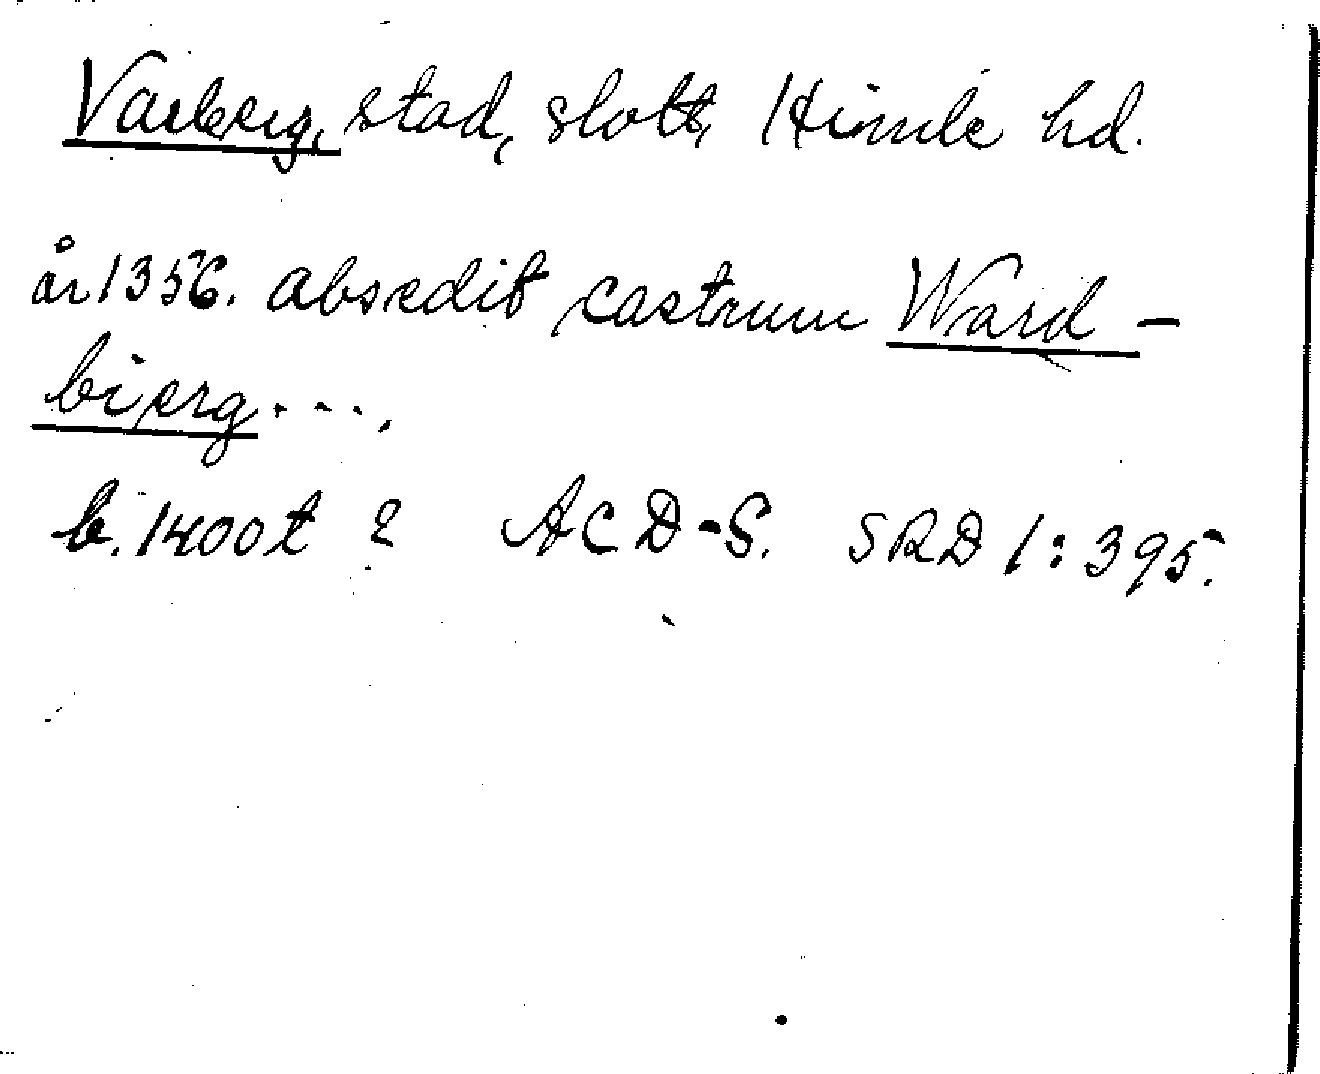 Varberg, stad, slott, Himle hd.
år 1356. absedit castrum Ward-
bierg....
b. 1400t ? ACD-S. SRD 1:395.